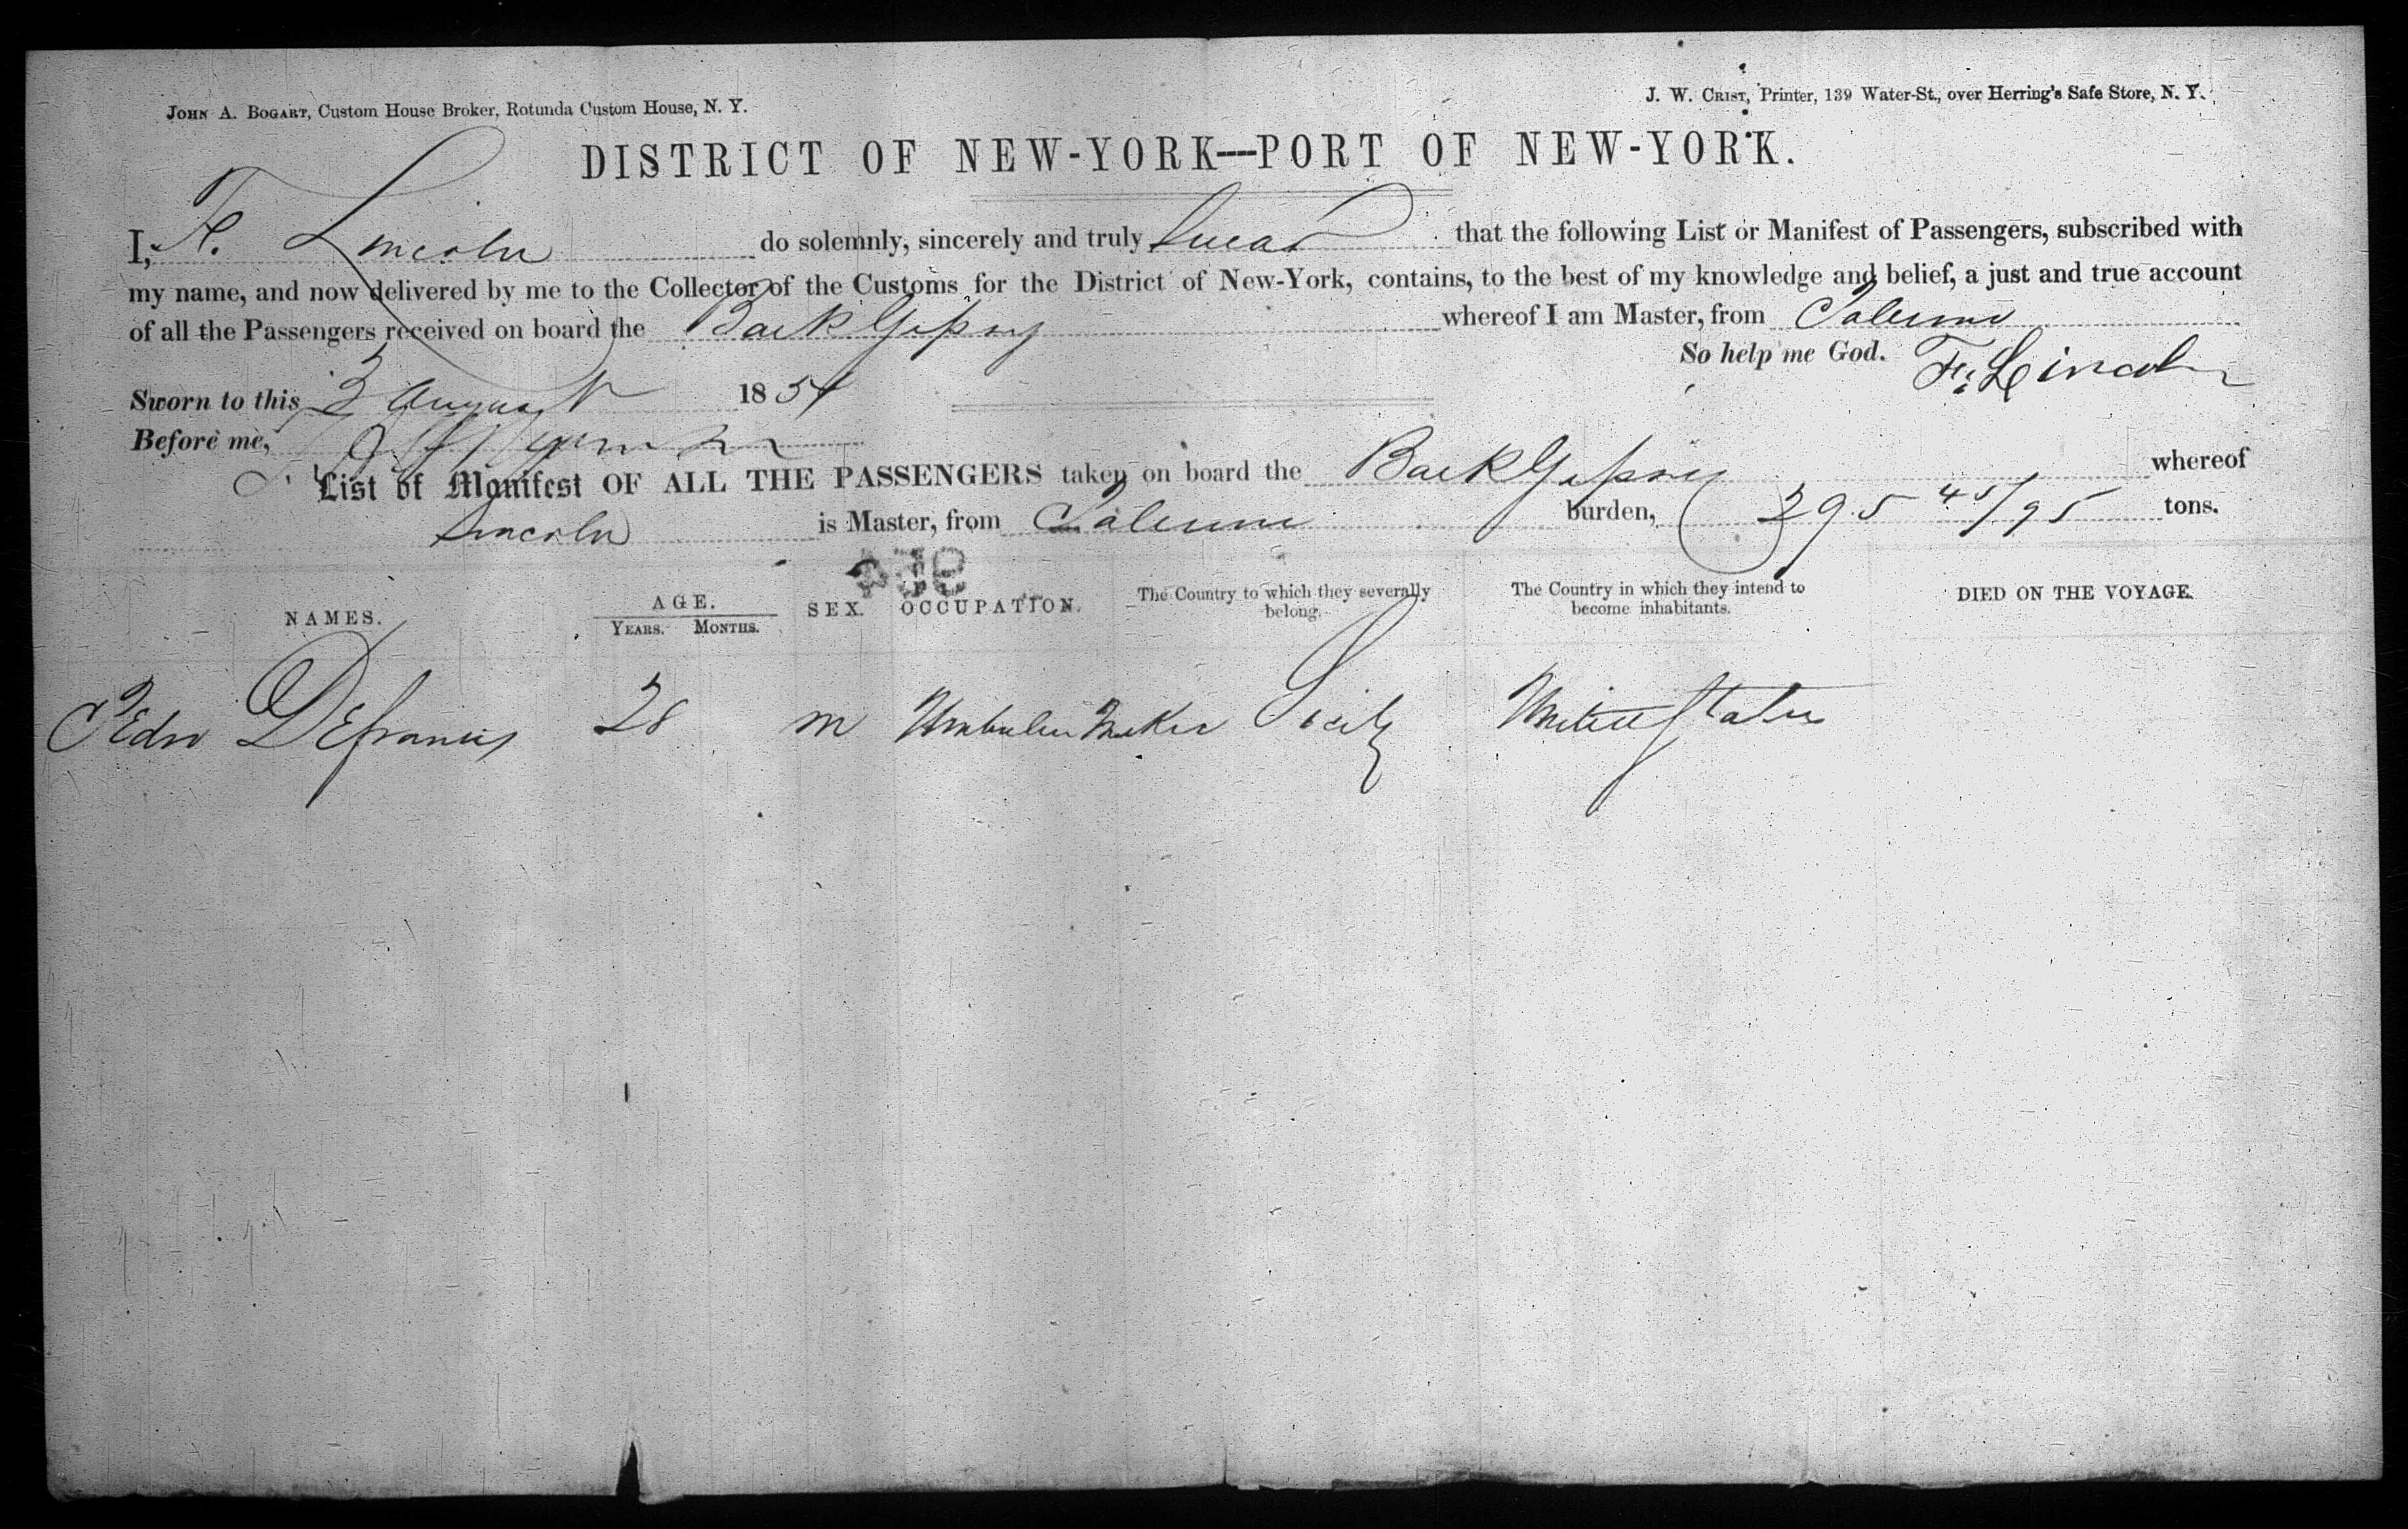 JOHN A. BOGART, Custom House Broker, Rotunda Custom House, N. Y.
J. W. CRIST, Printer, 139 Water-St., over Herring's Safe Store, N. Y.
DISTRICT OF NEW-YORK—PORT OF NEW-YORK.
I, F. Lincoln do solemnly, sincerely and truly Swear that the following List or Manifest of Passengers, subscribed with
my name, and now delivered by me to the Collector of the Customs for the District of New-York, contains, to the best of my knowledge and belief, a just and true account
of all the Passengers received on board the Bark Gipsey whereof I am Master, from Palermo
So help me God. F. Lincoln
Sworn to this 3 August 1854
Before me,
List or Manifest OF ALL THE PASSENGERS taken on board the Bark Gipsey whereof
Lincoln is Master, from Palermo burden, 295 45/95 tons.
NAMES. AGE. YEARS. MONTHS. SEX. OCCUPATION. The Country to which they severally belong. The Country in which they intend to become inhabitants. DIED ON THE VOYAGE.
PEdro DEfrancis 28 m Umbrella Maker Sicily United States